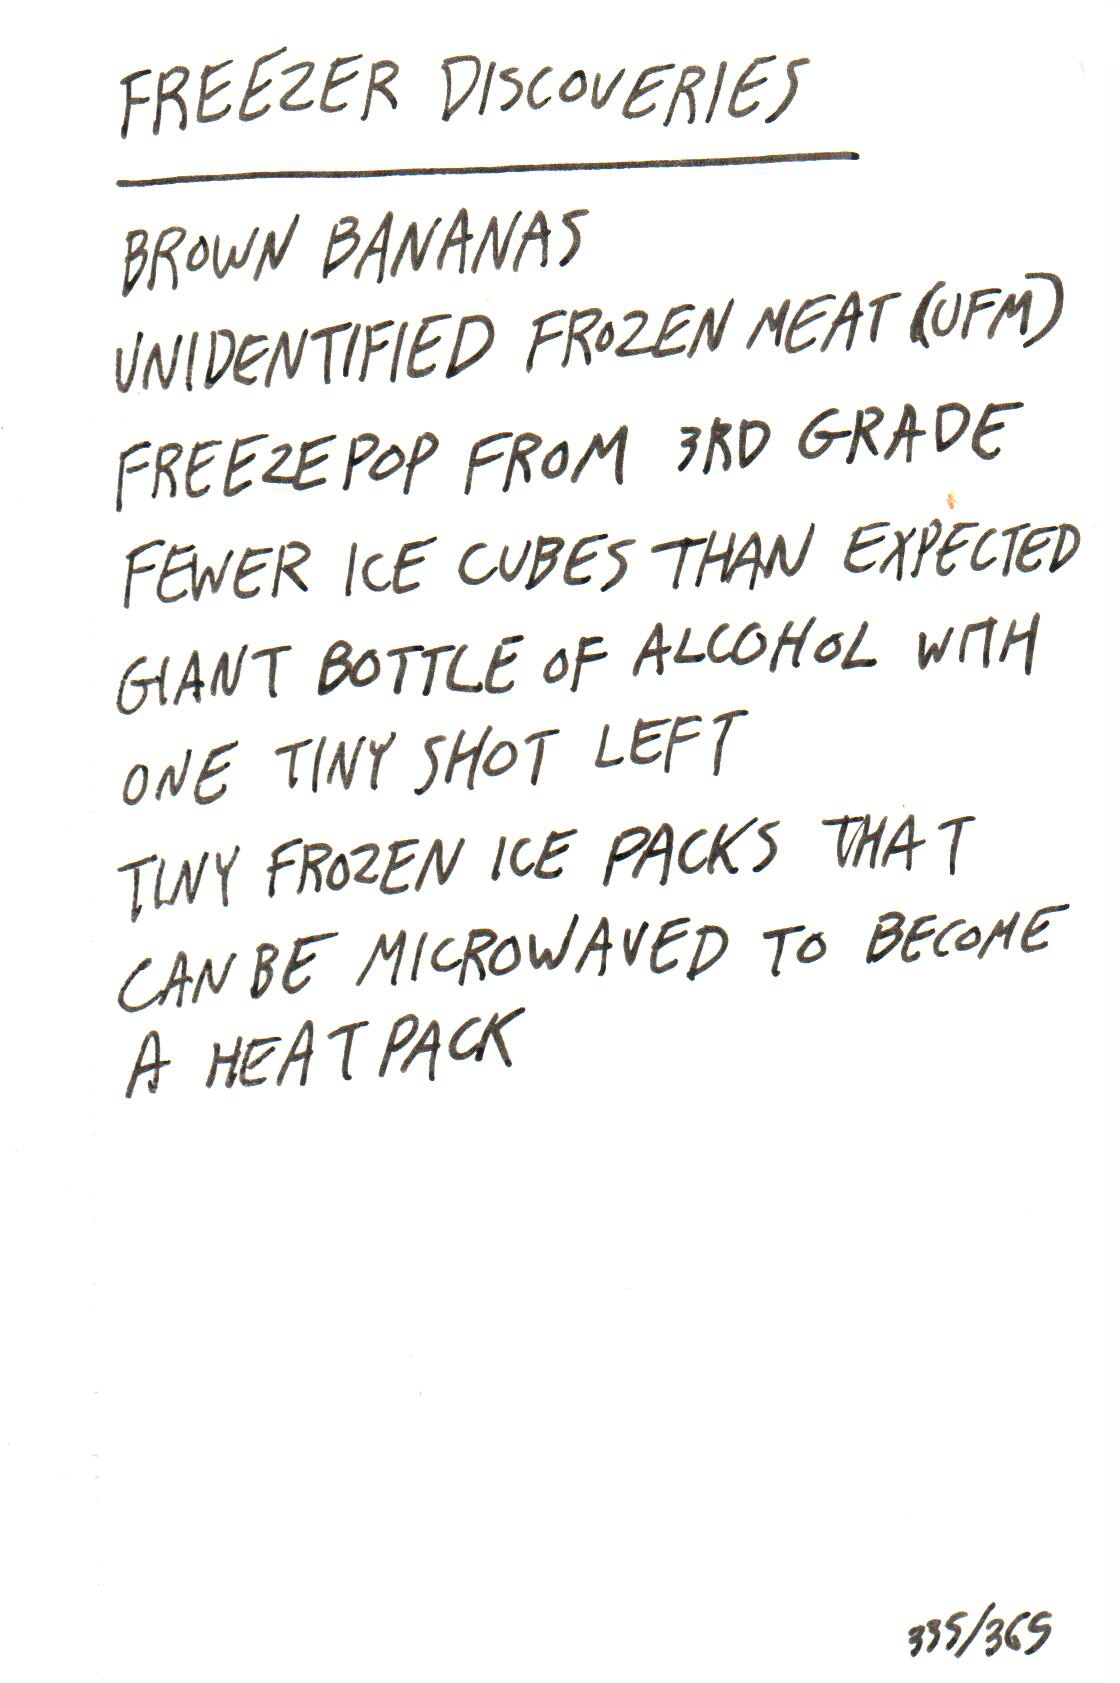 FREEZER DISCOVERIES
BROWN BANANAS
UNIDENTIFIED FROZEN MEAT (UFM)
FREEZEPOP FROM 3RD GRADE
FEWER ICE CUBES THAN EXPECTED
GIANT BOTTLE OF ALCOHOL WITH
ONE TINY SHOT LEFT
TINY FROZEN ICE PACKS THAT
CAN BE MICROWAVED TO BECOME
A HEAT PACK
335/365